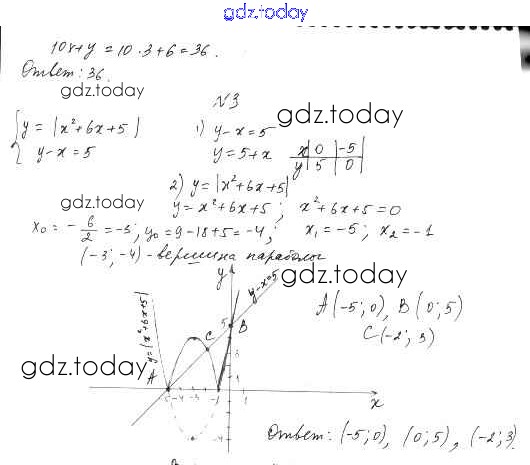 gdz.today
10x+y = 10·3+6 = 36.
Ответ: 36.
gdz.today
N3
gdz.today
{ y = |x²+6x+5|
y-x = 5
1) y-x=5
y=5+x
x | 0 | -5
y | 5 | 0
2) y = |x²+6x+5|
gdz.today
y = x²+6x+5; x²+6x+5=0
x₀ = -6/2 = -3; y₀ = 9-18+5 = -4; x₁ = -5; x₂ = -1
(-3; -4) - вершина параболы
gdz.today
y
y-x=5
y=|x²+6x+5|
A(-5;0), B(0;5)
C(-2; 3)
5
B
C
gdz.today
A
-5 -4 -1 1
x
-4
Ответ: (-5;0), (0;5), (-2;3).
gdz.today